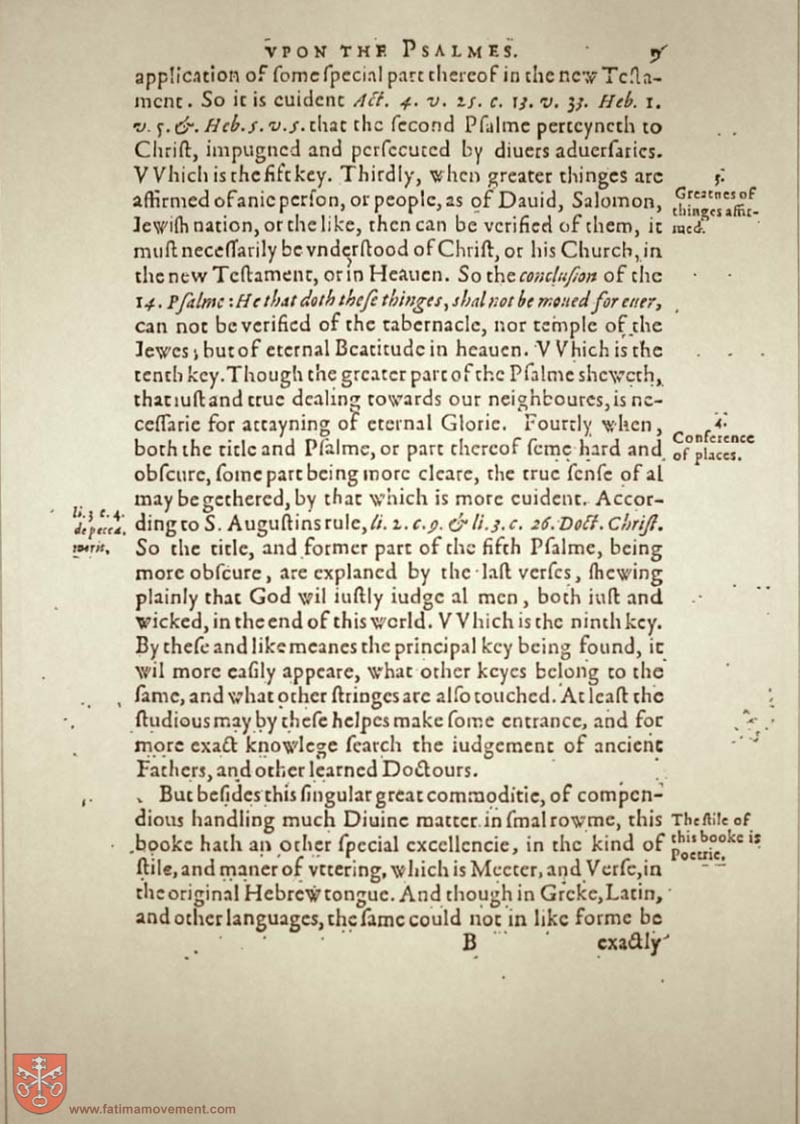 VPON THE PSALMES.
applicatiõ of ſome ſpecial part thereof in the new Teſta-
ment. So it is euident Act. 4. v. 25. c. 13. v. 33. Heb. 1.
v. 5. & Heb. 5. v. 5. that the ſecond Pſalme perteyneth to
Chriſt, impugned and perſecuted by diuers aduerſaries.
VVhich is the fift key. Thirdly, when greater thinges are
affirmed of anie perſon, or people, as of Dauid, Salomon,
Iewiſh nation, or the like, then can be verified of them, it
muſt neceſſarily be vnderſtood of Chriſt, or his Church, in
the new Teſtament, or in Heauen. So the concluſion of the
14. Pſalme: He that doth theſe thinges, shal not be moued for euer,
can not be verified of the tabernacle, nor temple of the
Iewes; but of eternal Beatitude in heauen. VVhich is the
tenth key. Though the greater part of the Pſalme sheweth,
that iuſt and true dealing towards our neighboures, is ne-
ceſſarie for attayning of eternal Glorie. Fourtly when,
both the title and Pſalme, or part thereof ſeme hard and
obſcure, ſome part being more cleare, the true ſenſe of al
may be gethered, by that which is more euident. Accor-
ding to S. Auguſtins rule, li. 2. c. 9. & li. 3. c. 26. Doct. Chriſt.
So the title, and former part of the fifth Pſalme, being
more obſcure, are explaned by the laſt verſes, ſhewing
plainly that God wil iuſtly iudge al men, both iuſt and
wicked, in the end of this world. VVhich is the ninth key.
By theſe and like meanes the principal key being found, it
wil more eaſily appeare, what other keyes belong to the
ſame, and what other ſtringes are alſo touched. At leaſt the
ſtudious may by theſe helpes make ſome entrance, and for
more exact knowlege ſearch the iudgement of ancient
Fathers, and other learned Doctours.
But beſides this ſingular great commoditie, of compen-
dious handling much Diuine matter in ſmal rowme, this
booke hath an other ſpecial excellencie, in the kind of
ſtile, and maner of vttering, which is Meeter, and Verſe, in
the original Hebrew tongue. And though in Greke, Latin,
and other languages, the ſame could not in like forme be
B exactly
3.
Greatnes of
thinges affir-
med.
4.
Conference
of places.
li. 3 c. 4.
de pecca.
merit.
The ſtile of
this booke is
Poetrie.
www.fatimamovement.com